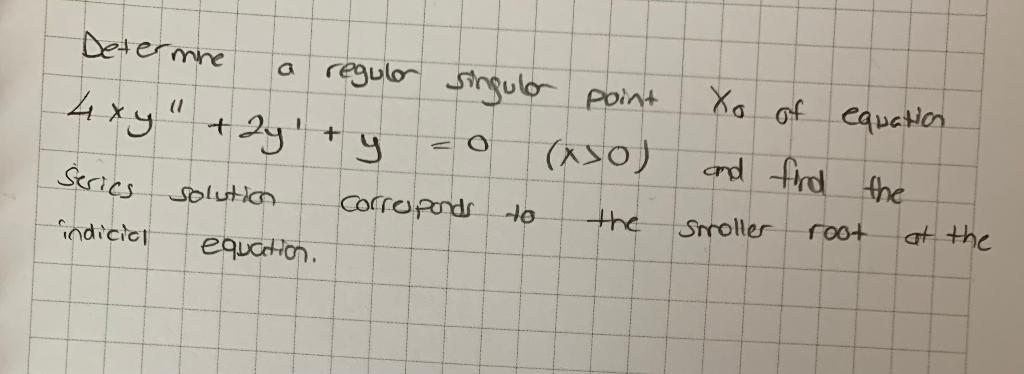 Determine a regular singular point x₀ of equation
4xy'' + 2y' + y = 0 (x>0) and find the
series solution corresponds to the smaller root of the
indicial equation.